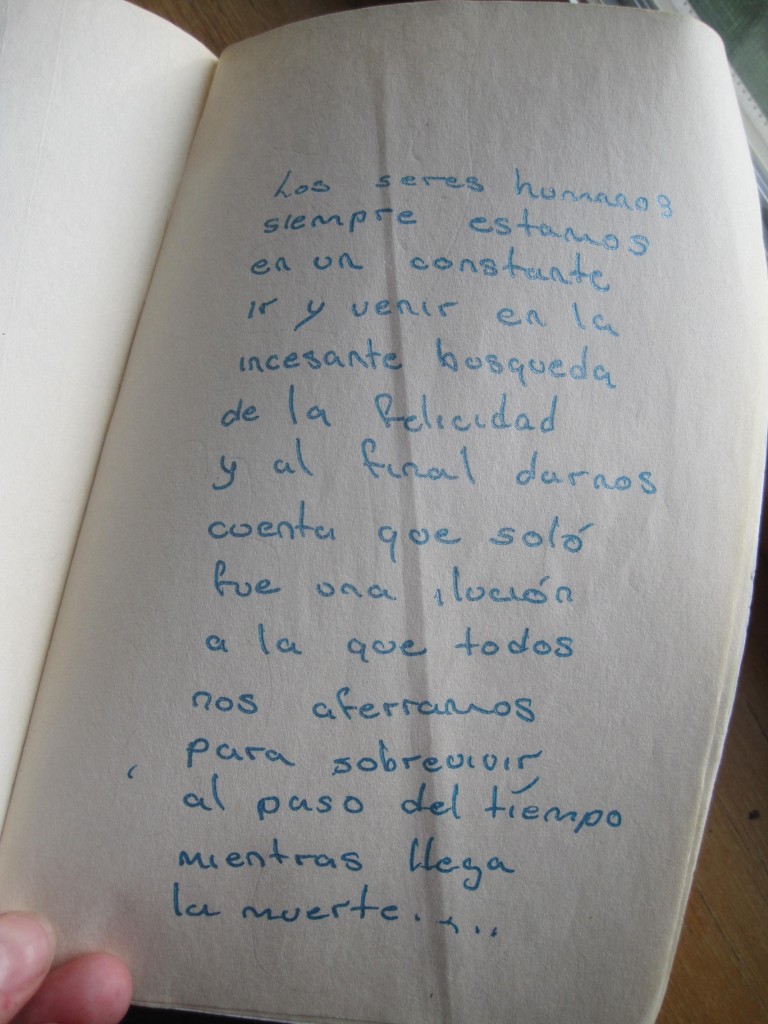 Los seres humanos
siempre estamos
en un constante
ir y venir en la
incesante busqueda
de la felicidad
y al final darnos
cuenta que soló
fue una ilución
a la que todos
nos aferramos
para sobrevivir
al paso del tíempo
mientras llega
la muerte.....